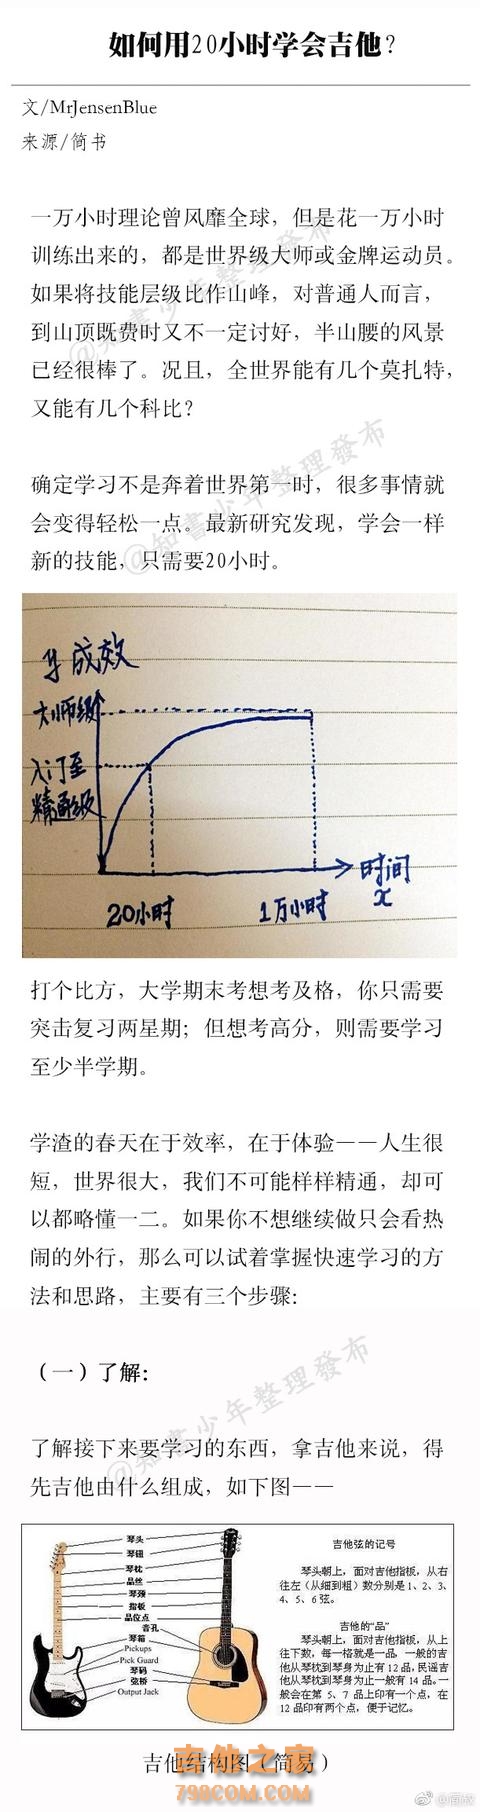 如何用20小时学会吉他？
文/MrJensenBlue
来源/简书
一万小时理论曾风靡全球，但是花一万小时
训练出来的，都是世界级大师或金牌运动员。
如果将技能层级比作山峰，对普通人而言，
到山顶既费时又不一定讨好，半山腰的风景
已经很棒了。况且，全世界能有几个莫扎特，
又能有几个科比？
@知書少年整理發布
确定学习不是奔着世界第一时，很多事情就
会变得轻松一点。最新研究发现，学会一样
新的技能，只需要20小时。
@知書少年整理發布
y 成效
大师级
入门至
精通级
20小时
1万小时
时间
x
打个比方，大学期末考想考及格，你只需要
突击复习两星期；但想考高分，则需要学习
至少半学期。
学渣的春天在于效率，在于体验——人生很
短，世界很大，我们不可能样样精通，却可
以都略懂一二。如果你不想继续做只会看热
闹的外行，那么可以试着掌握快速学习的方
法和思路，主要有三个步骤：
（一）了解：
@知書少年整理發布
了解接下来要学习的东西，拿吉他来说，得
先吉他由什么组成，如下图——
琴头
琴钮
琴枕
品丝
琴颈
指板
品位点
音孔
琴箱
Pickups
Pick Guard
琴码
弦桥
Output Jack
吉他弦的记号
琴头朝上，面对吉他指板，从右
往左（从细到粗）数分别是1、2、3、
4、5、6弦。
吉他的“品”
琴头朝上，面对吉他指板，从上
往下数，每一格就是一品，一般的吉
他从琴枕到琴身为止有12品，民谣吉
他从琴枕到琴身为止一般有14品。一
般会在第5、7品上印有一个点，在
12品印有两个点，便于记忆。
吉他结构图（简易）
吉他之家
798COM.COM